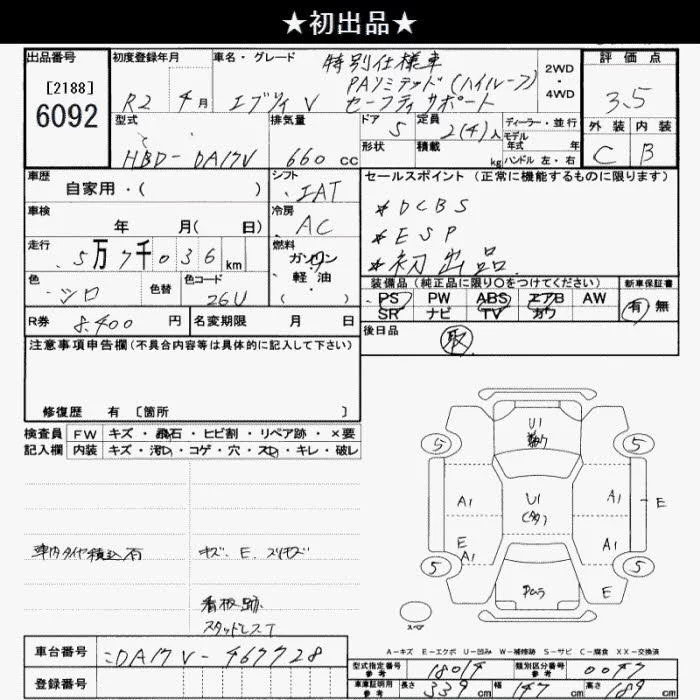 ★初出品★
出品番号
[2188]
6092
初度登録年月
R2 4月
車名・グレード
特別仕様車
エブリィV PAリミテッド(ハイルーフ)
セーフティサポート
2WD
4WD
評価点
3.5
外装 内装
C B
型式
HBD-DA17V
排気量
660 cc
ドア 5
形状
定員 2(4)人
積載 kg
ディーラー・並行
モデル年式 年
ハンドル 左・右
車歴
自家用・( )
シフト
IAT
車検
年 月( 日)
冷房
AC
走行
5万7千036km
燃料
ガソリン
・軽油
( )
色
シロ
色替
色コード
26U
セールスポイント(正常に機能するものに限ります)
*DCBS
*ESP
*初出品
装備品(純正品に限り○をつけてください)
PS PW ABS エアB AW
SR ナビ TV カワ
新車保証書
有 無
R券 8,400 円
名変期限 月 日
後日品
取
注意事項申告欄(不具合内容等は具体的に記入して下さい)
修復歴 有〔箇所 〕
検査員 FW キズ・飛石・ヒビ割・リペア跡・×要
記入欄 内装 キズ・汚れ・コゲ・穴・スレ・キレ・破レ
車内タイヤ積込有
キズ、E、スリキズ
看板跡
スタッドレスT
U1
5 5
A1 U1 A1 E
(タタ)
E
A1 A1
5 5
E
スペア
A-キズ E-エクボ U-凹み W-補修跡 S-サビ C-腐食 XX-交換済
車台番号 DA17V-467728
登録番号
型式指定番号 参考 18014
類別区分番号 参考 0047
車庫証明用 参考 長さ 339cm 幅 147cm 高さ 189cm